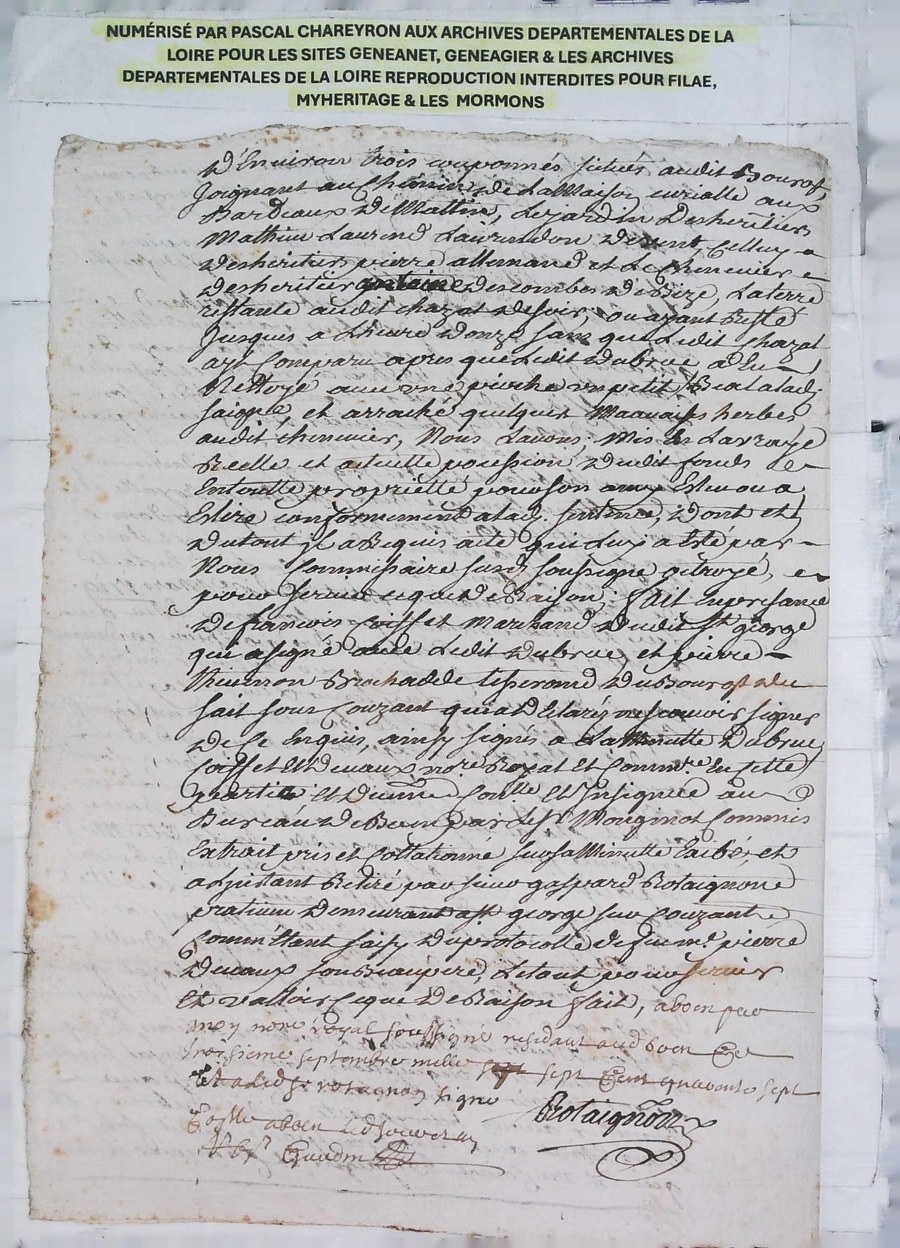 NUMÉRISÉ PAR PASCAL CHAREYRON AUX ARCHIVES DEPARTEMENTALES DE LA
LOIRE POUR LES SITES GENEANET, GENEAGIER & LES ARCHIVES
DEPARTEMENTALES DE LA LOIRE REPRODUCTION INTERDITES POUR FILAE,
MYHERITAGE & LES MORMONS
D'Enuiron trois couponnés situés audit Bourg,
Joignant au Chemin de La Maison curialle aux
Bardeaux de Matin, Le jardin Desheritiers
Mathieu Laurend Laurendon de vent, Celluy
Desheritiers pierre allemand et Le Chenevier
Desheritiers antoine Descombes De Bize, La terre
restante audit chazat de soir, ou ayant Resté
Jusques a L'heure Donze sans que Ledit Chazat
ayt Comparu apres que Ledit Dubrue a
Nettoyé avec une pioche un petit Beal alad.
saigne, et arraché quelques Mauvaises herbes
audit chenevier, Nous Lavons Mis en La vraye
Reelle et actuelle pocession dudit fonds
En toutte proprietté pour son
Estre conformement alad. sentence, Dont et
Du tout Jl a Requis acte qui Luy a Esté par
Nous Commissaire susd. soussigné octroyé,
pour servir ce que De Raison, fait En presence
De francois Coiffet Marchand dudit St george
qui a signé avec Ledit Dubrue, et pierre
thevenon Brochadele tisserand Du Bourg
sait sous Couzant qui a Declaré ne scavoir signer
De Ce Enquis, ainsy signés a La Minutte Dubrue,
Coiffet Et Devaux nore. Royal Et Commre. En cette
partie Et Duëment Conllé Et Jnsignué au
Bureau De Boen par Le Sr. Monginot Commis
Extrait pris et Collationné sur sa Minutte Exibée, et
a Linstant Retiré par sieur gaspard Rotaignon
praticien Demeurant a St. george sur Couzant
Commettant saisy Du protocolle de feu me. pierre
Devaux son Beaupere, Le tout pour servir
Et valloir Ce que De Raison fait, a boen par
moy nore. royal soussigné residant aud boen Ce
troisieme septembre mille sept Cent quarante sept
Et a Led. Sr. rotagnon signé
Rotaignon
Conlle a boen
Gaudin